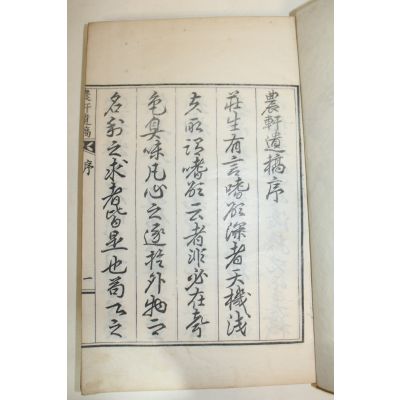 農軒遺稿序
莊生有言嗜慾深者天機淺
夫所謂嗜慾云者非必在聲
色臭味凡心之逐於外物而
名利之求者皆是也苟之
農軒遺稿 序 一